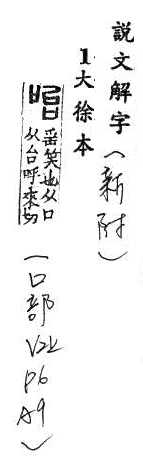 説文解字(新附)
1大徐本
咍
蚩笑也从口
从台呼來切
(口部 V2上 P6 A9)